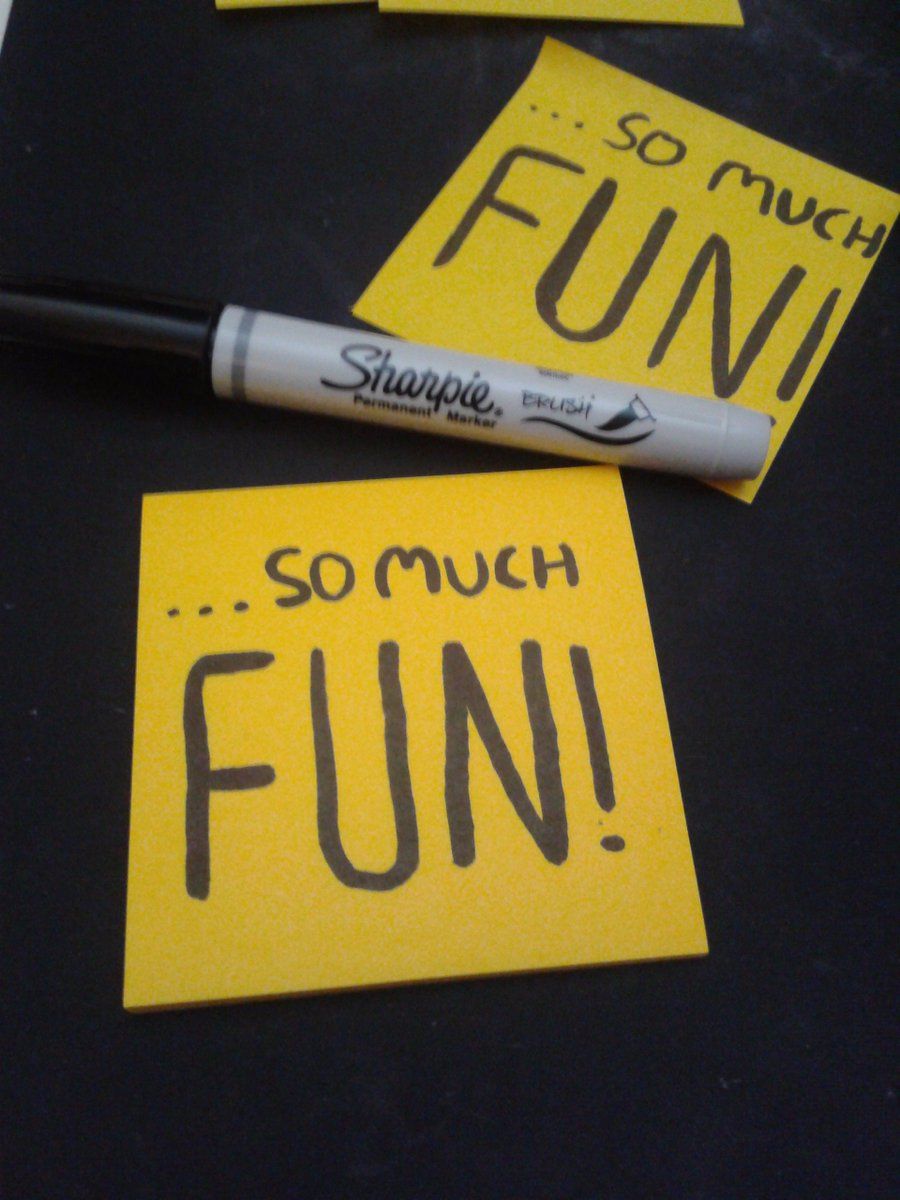 ... SO MUCH
FUN!
Sharpie®
Permanent Marker
BRUSH
... SO MUCH
FUN!